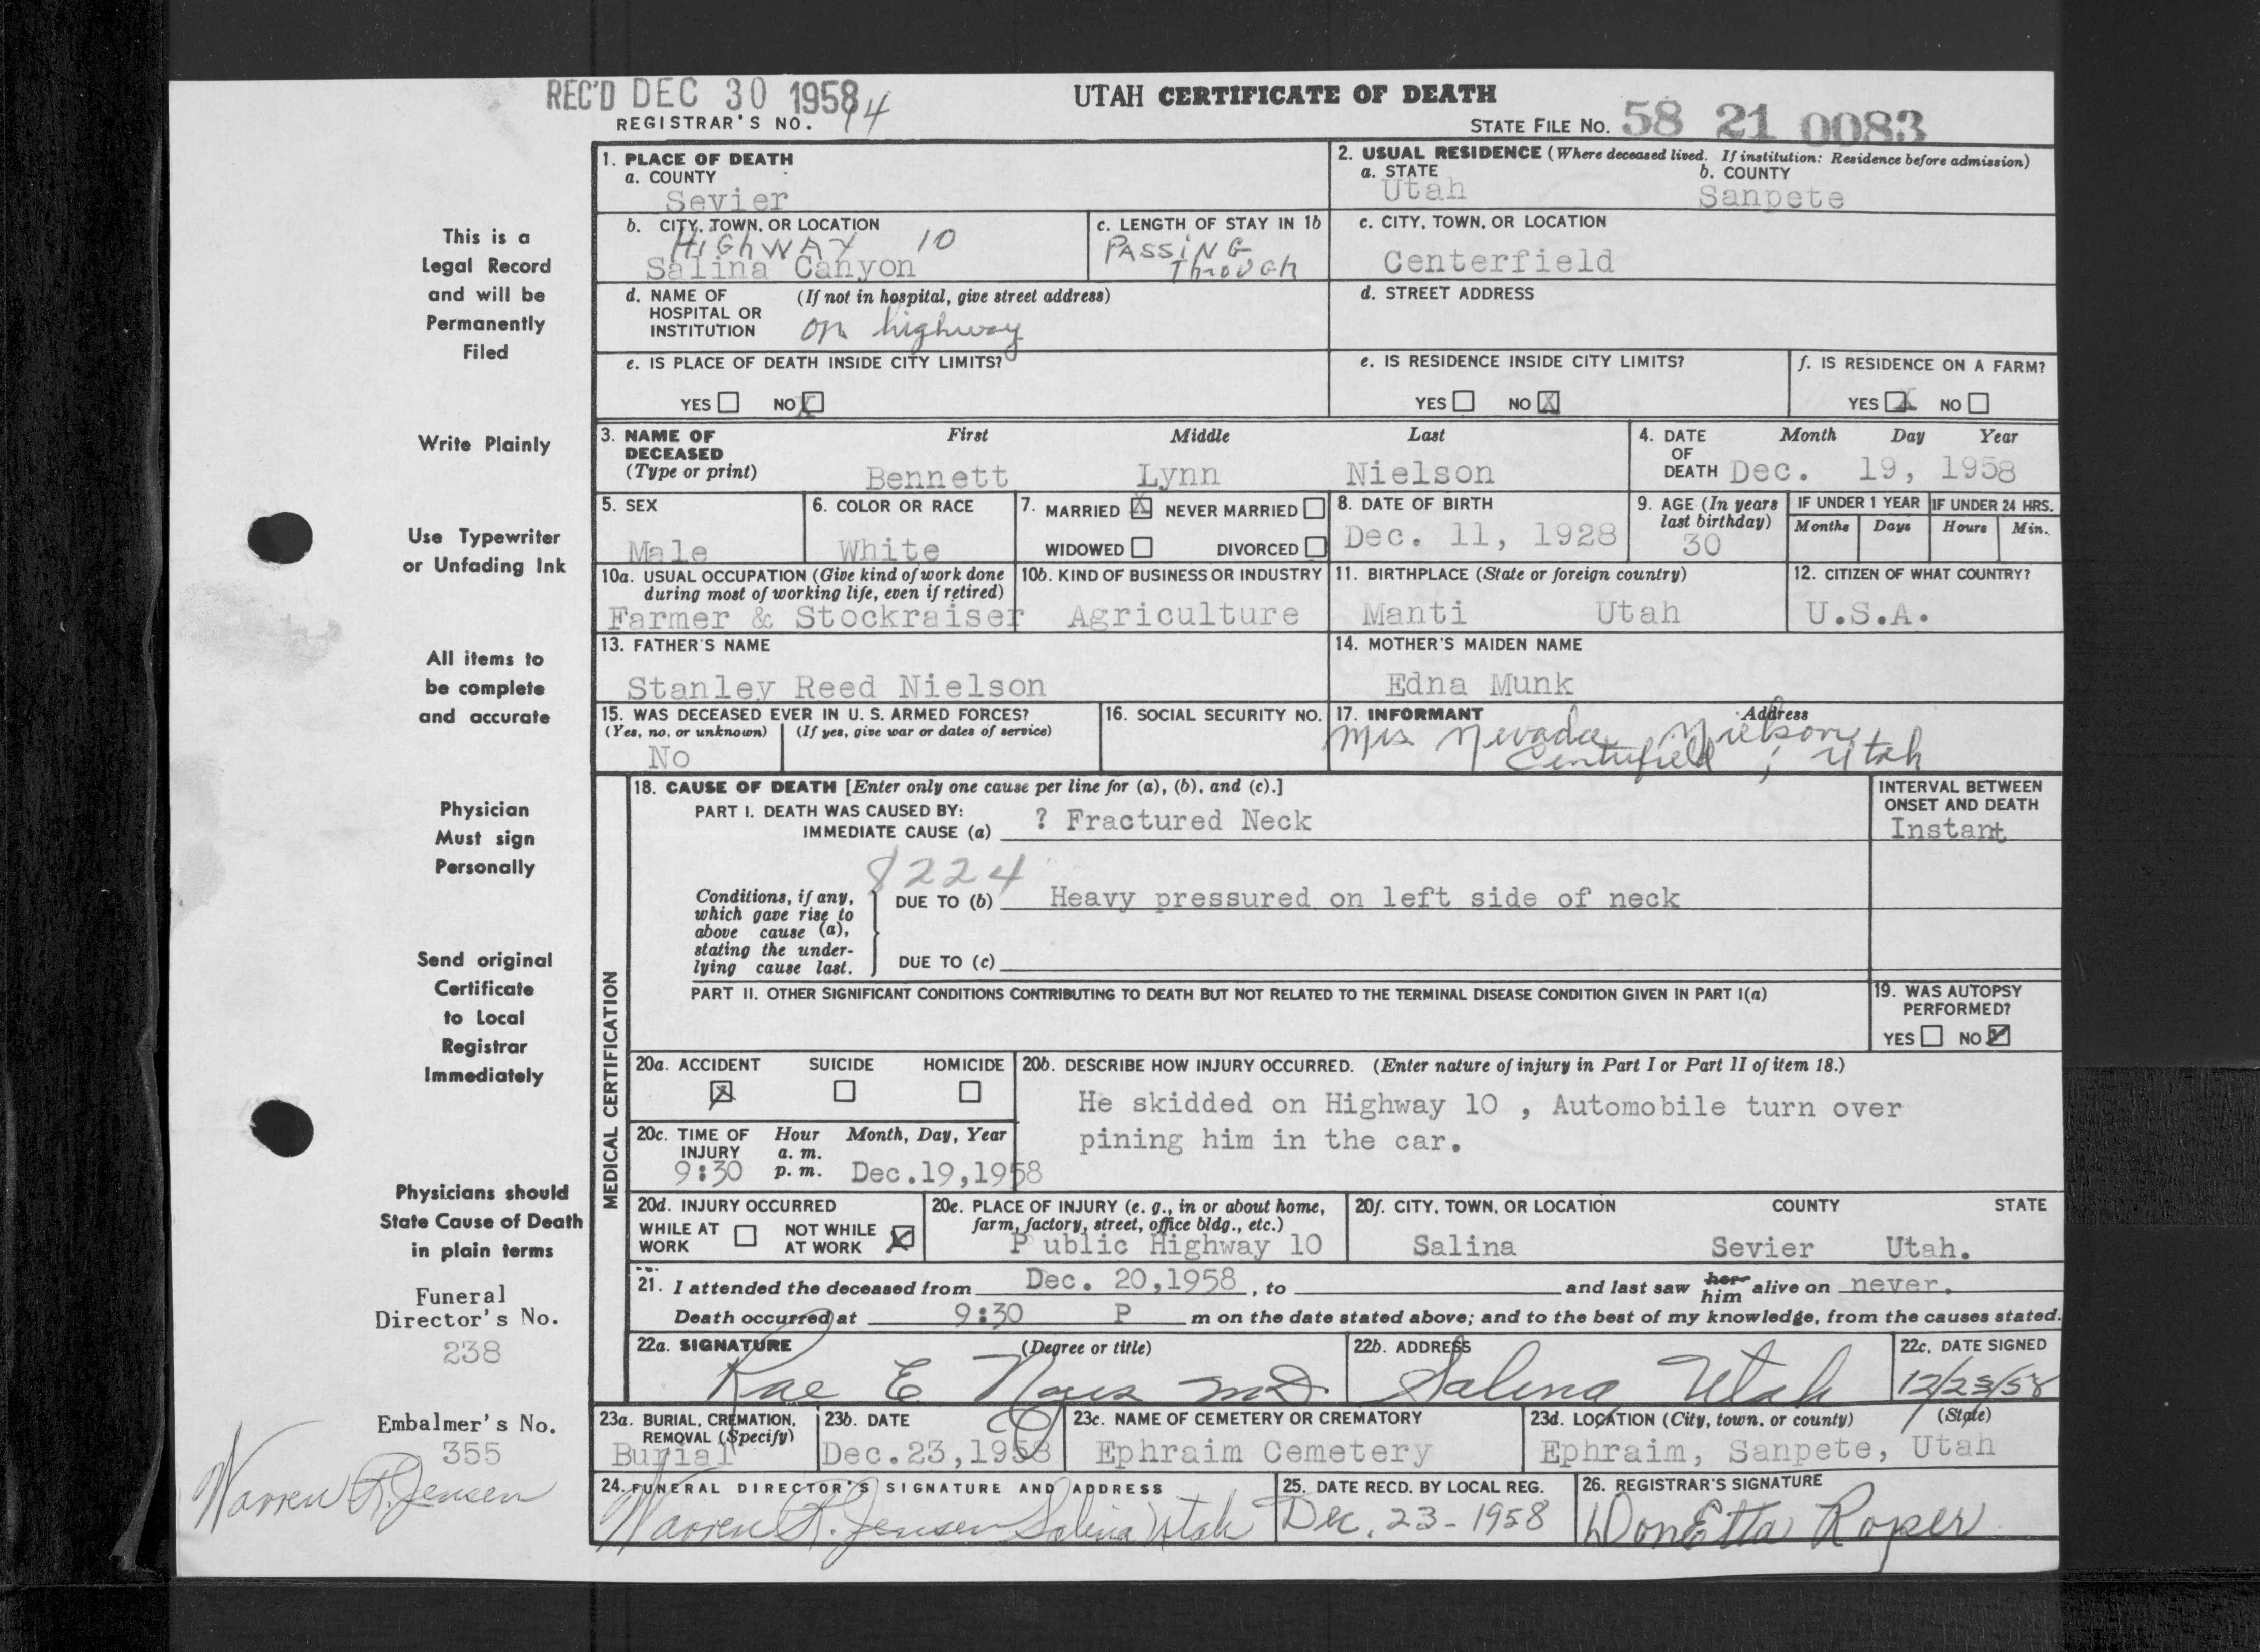 REC'D DEC 30 1958
REGISTRAR'S NO. 94
UTAH CERTIFICATE OF DEATH
STATE FILE NO. 58 21 0083
1. PLACE OF DEATH
a. COUNTY
Sevier
2. USUAL RESIDENCE (Where deceased lived. If institution: Residence before admission)
a. STATE
Utah
b. COUNTY
Sanpete
b. CITY, TOWN, OR LOCATION
HIGHWAY 10
Salina Canyon
c. LENGTH OF STAY IN 1b
PASSING
Through
c. CITY, TOWN, OR LOCATION
Centerfield
d. NAME OF (If not in hospital, give street address)
HOSPITAL OR
INSTITUTION on highway
d. STREET ADDRESS
e. IS PLACE OF DEATH INSIDE CITY LIMITS?
YES NO X
e. IS RESIDENCE INSIDE CITY LIMITS?
YES NO X
f. IS RESIDENCE ON A FARM?
YES X NO
3. NAME OF DECEASED
(Type or print)
First Middle Last
Bennett Lynn Nielson
4. DATE OF DEATH
Month Day Year
Dec. 19, 1958
5. SEX
Male
6. COLOR OR RACE
White
7. MARRIED X NEVER MARRIED
WIDOWED DIVORCED
8. DATE OF BIRTH
Dec. 11, 1928
9. AGE (In years last birthday)
30
IF UNDER 1 YEAR
Months Days
IF UNDER 24 HRS.
Hours Min.
10a. USUAL OCCUPATION (Give kind of work done
during most of working life, even if retired)
Farmer & Stockraiser
10b. KIND OF BUSINESS OR INDUSTRY
Agriculture
11. BIRTHPLACE (State or foreign country)
Manti Utah
12. CITIZEN OF WHAT COUNTRY?
U.S.A.
13. FATHER'S NAME
Stanley Reed Nielson
14. MOTHER'S MAIDEN NAME
Edna Munk
15. WAS DECEASED EVER IN U. S. ARMED FORCES?
(Yes, no, or unknown) (If yes, give war or dates of service)
No
16. SOCIAL SECURITY NO.
17. INFORMANT Address
Mrs Nevada Nielson
Centerfield, Utah
MEDICAL CERTIFICATION
18. CAUSE OF DEATH [Enter only one cause per line for (a), (b), and (c).]
PART I. DEATH WAS CAUSED BY:
IMMEDIATE CAUSE (a) ? Fractured Neck
INTERVAL BETWEEN
ONSET AND DEATH
Instant
8224
Conditions, if any,
which gave rise to
above cause (a),
stating the under-
lying cause last.
DUE TO (b) Heavy pressured on left side of neck
DUE TO (c)
PART II. OTHER SIGNIFICANT CONDITIONS CONTRIBUTING TO DEATH BUT NOT RELATED TO THE TERMINAL DISEASE CONDITION GIVEN IN PART I(a)
19. WAS AUTOPSY
PERFORMED?
YES NO
20a. ACCIDENT SUICIDE HOMICIDE
X
20b. DESCRIBE HOW INJURY OCCURRED. (Enter nature of injury in Part I or Part II of item 18.)
He skidded on Highway 10 , Automobile turn over
pining him in the car.
20c. TIME OF INJURY
Hour Month, Day, Year
a. m.
9:30 p. m. Dec.19,1958
20d. INJURY OCCURRED
WHILE AT WORK
NOT WHILE AT WORK X
20e. PLACE OF INJURY (e. g., in or about home,
farm, factory, street, office bldg., etc.)
Public Highway 10
20f. CITY, TOWN, OR LOCATION COUNTY STATE
Salina Sevier Utah.
21. I attended the deceased from Dec. 20,1958, to and last saw her him alive on never.
Death occurred at 9:30 P m on the date stated above; and to the best of my knowledge, from the causes stated.
22a. SIGNATURE (Degree or title)
Rae E Noyes MD
22b. ADDRESS
Salina Utah
22c. DATE SIGNED
12/23/58
23a. BURIAL, CREMATION,
REMOVAL (Specify)
Burial
23b. DATE
Dec.23,1958
23c. NAME OF CEMETERY OR CREMATORY
Ephraim Cemetery
23d. LOCATION (City, town, or county) (State)
Ephraim, Sanpete, Utah
24. FUNERAL DIRECTOR'S SIGNATURE AND ADDRESS
Warren R. Jensen Salina Utah
25. DATE RECD. BY LOCAL REG.
Dec. 23 - 1958
26. REGISTRAR'S SIGNATURE
DonEtta Roper
This is a
Legal Record
and will be
Permanently
Filed
Write Plainly
Use Typewriter
or Unfading Ink
All items to
be complete
and accurate
Physician
Must sign
Personally
Send original
Certificate
to Local
Registrar
Immediately
Physicians should
State Cause of Death
in plain terms
Funeral
Director's No.
238
Embalmer's No.
355
Warren R. Jensen